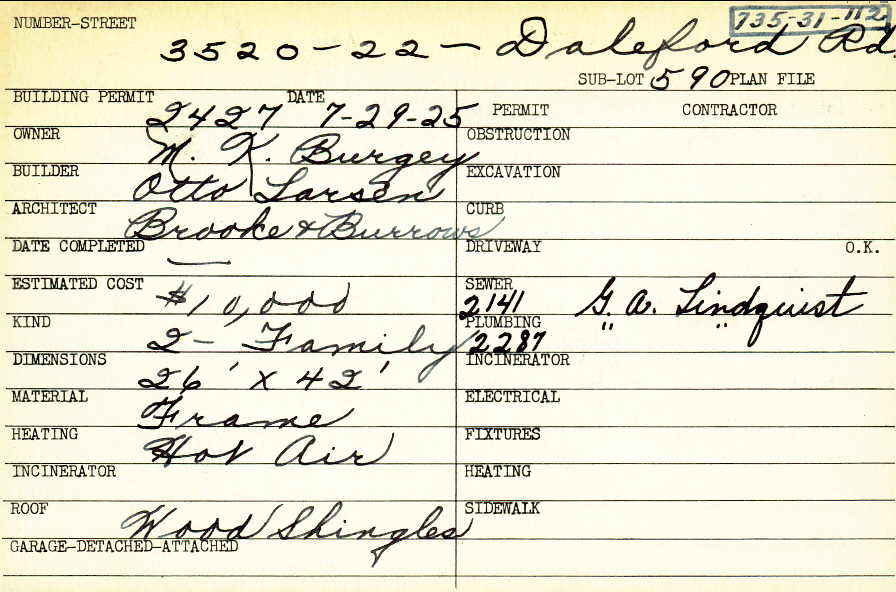 735-31-112
NUMBER-STREET 3520-22- Daleford Rd.
SUB-LOT 590 PLAN FILE
BUILDING PERMIT 2427 DATE 7-29-25 PERMIT CONTRACTOR
OWNER M. K. Burgey OBSTRUCTION
BUILDER Otto Larsen EXCAVATION
ARCHITECT Brooke & Burrows CURB
DATE COMPLETED — DRIVEWAY O.K.
ESTIMATED COST $10,000 SEWER 2141 G. A. Lindquist
KIND 2- Family PLUMBING 2287 " "
DIMENSIONS 26' x 42' INCINERATOR
MATERIAL Frame ELECTRICAL
HEATING Hot Air FIXTURES
INCINERATOR HEATING
ROOF Wood Shingles SIDEWALK
GARAGE-DETACHED-ATTACHED